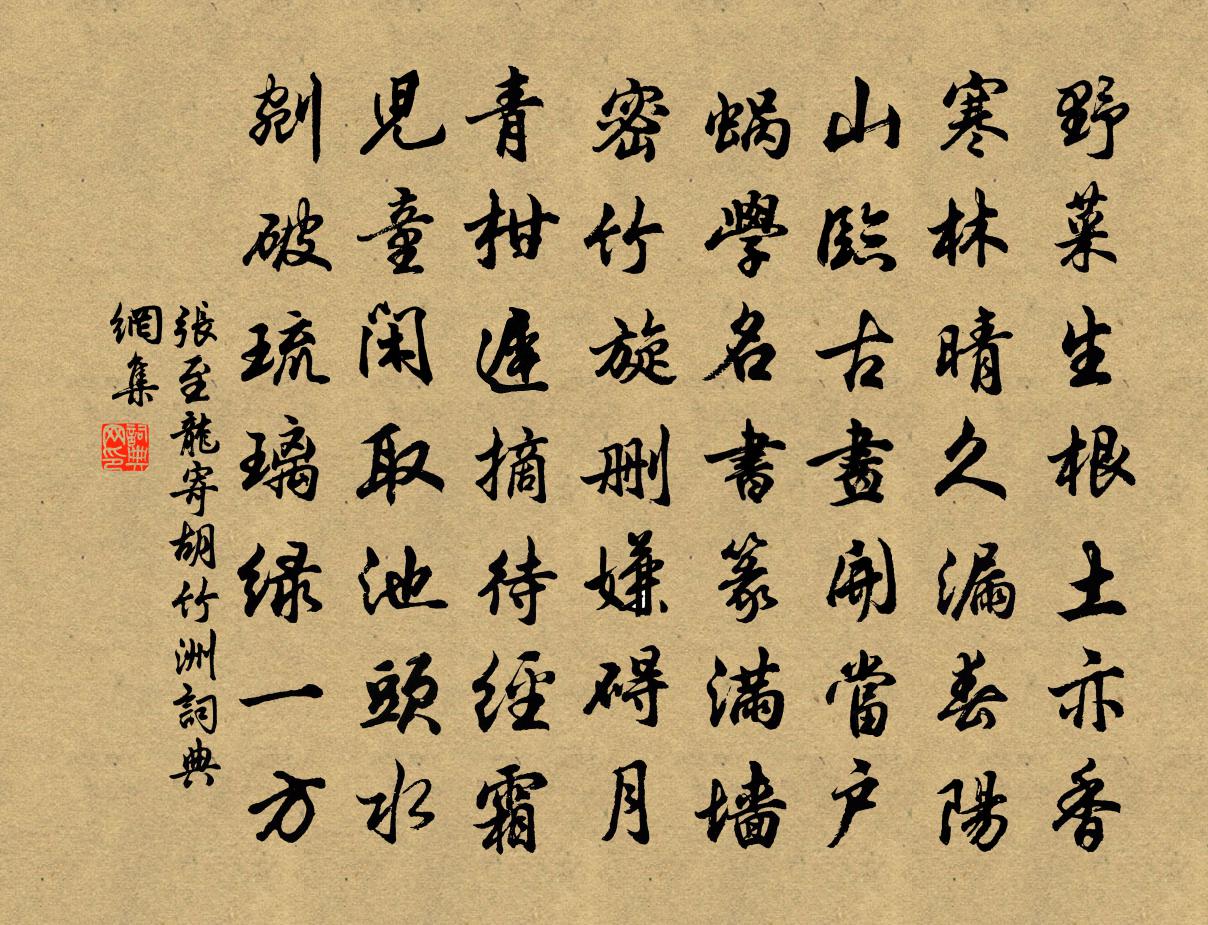 野菜生根土亦香
寒林晴久漏春陽
山臨古畫開當戶
蝸學名書篆滿墻
密竹旋删嫌碍月
青柑遲摘待經霜
兒童閑取池頭水
剜破琉璃緑一方
張至龍寄胡竹洲詞典
網集
詞典
网印